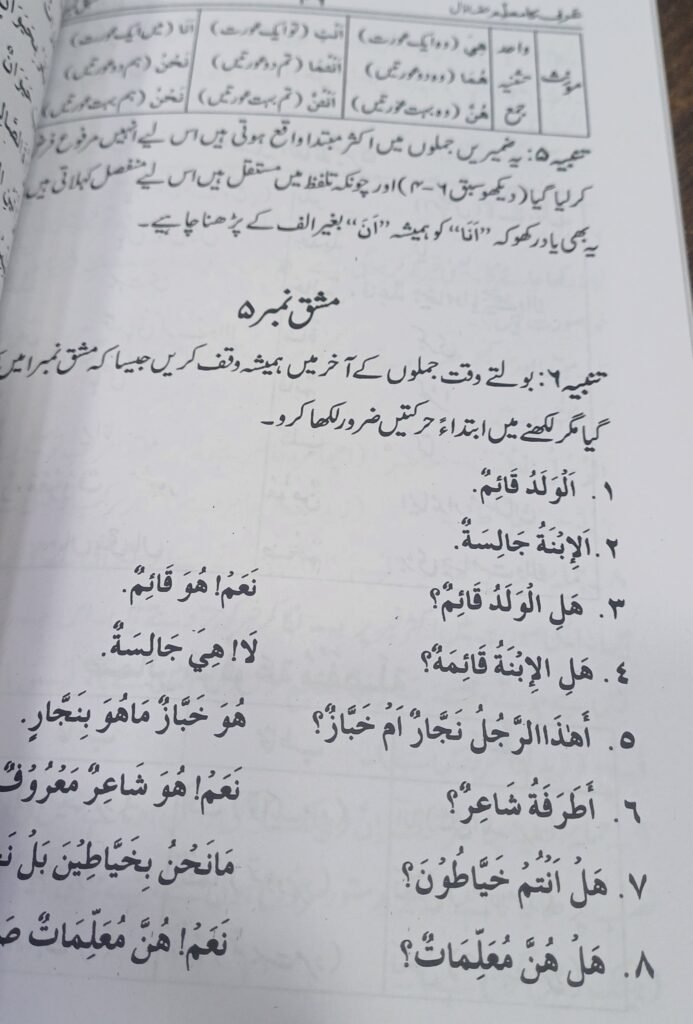 عربی کا معلم حصہ اوّل
مؤنث واحد هِیَ (وہ ایک عورت) اَنْتِ (تو ایک عورت) اَنَا (میں ایک عورت)
تثنیہ هُمَا (وہ دو عورتیں) اَنْتُمَا (تم دو عورتیں) نَحْنُ (ہم دو عورتیں)
جمع هُنَّ (وہ بہت عورتیں) اَنْتُنَّ (تم بہت عورتیں) نَحْنُ (ہم بہت عورتیں)
تنبیہ ۵: یہ ضمیریں جملوں میں اکثر مبتدا واقع ہوتی ہیں اس لیے انہیں مرفوع فرض
کر لیا گیا (دیکھو سبق ۶-۴) اور چونکہ تلفظ میں مستقل ہیں اس لیے منفصل کہلاتی ہیں
یہ بھی یاد رکھو کہ ”اَنَا“ کو ہمیشہ ”اَنَ“ بغیر الف کے پڑھنا چاہیے۔
مشق نمبر ۵
تنبیہ ۶: بولتے وقت جملوں کے آخر میں ہمیشہ وقف کریں جیسا کہ مشق نمبر ا میں
گیا مگر لکھنے میں ابتداءً حرکتیں ضرور لکھا کرو۔
۱. اَلْوَلَدُ قَائِمٌ.
۲. اَلِابْنَةُ جَالِسَةٌ.
۳. هَلِ الْوَلَدُ قَائِمٌ؟ نَعَمْ! هُوَ قَائِمٌ.
٤. هَلِ الْاِبْنَةُ قَائِمَةٌ؟ لَا! هِيَ جَالِسَةٌ.
٥. أَهٰذَا الرَّجُلُ نَجَّارٌ اَمْ خَبَّازٌ؟ هُوَ خَبَّازٌ مَاهُوَ بِنَجَّارٍ.
٦. أَطَرَفَةُ شَاعِرٌ؟ نَعَمْ! هُوَ شَاعِرٌ مَعْرُوْفٌ
٧. هَلْ اَنْتُمْ خَيَّاطُوْنَ؟ مَانَحْنُ بِخَيَّاطِيْنَ بَلْ
٨. هَلْ هُنَّ مُعَلِّمَاتٌ؟ نَعَمْ! هُنَّ مُعَلِّمَاتٌ